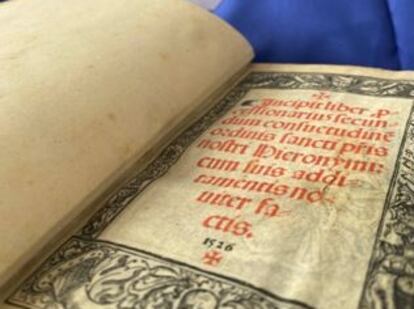 ✠
Incipit liber P
cessionarius secun
dum consuetudinē
ordinis sancti pr̄is
nostri Hieronymi:
cum suis addi
tamentis no
uiter fa
ctis.
1526
✠